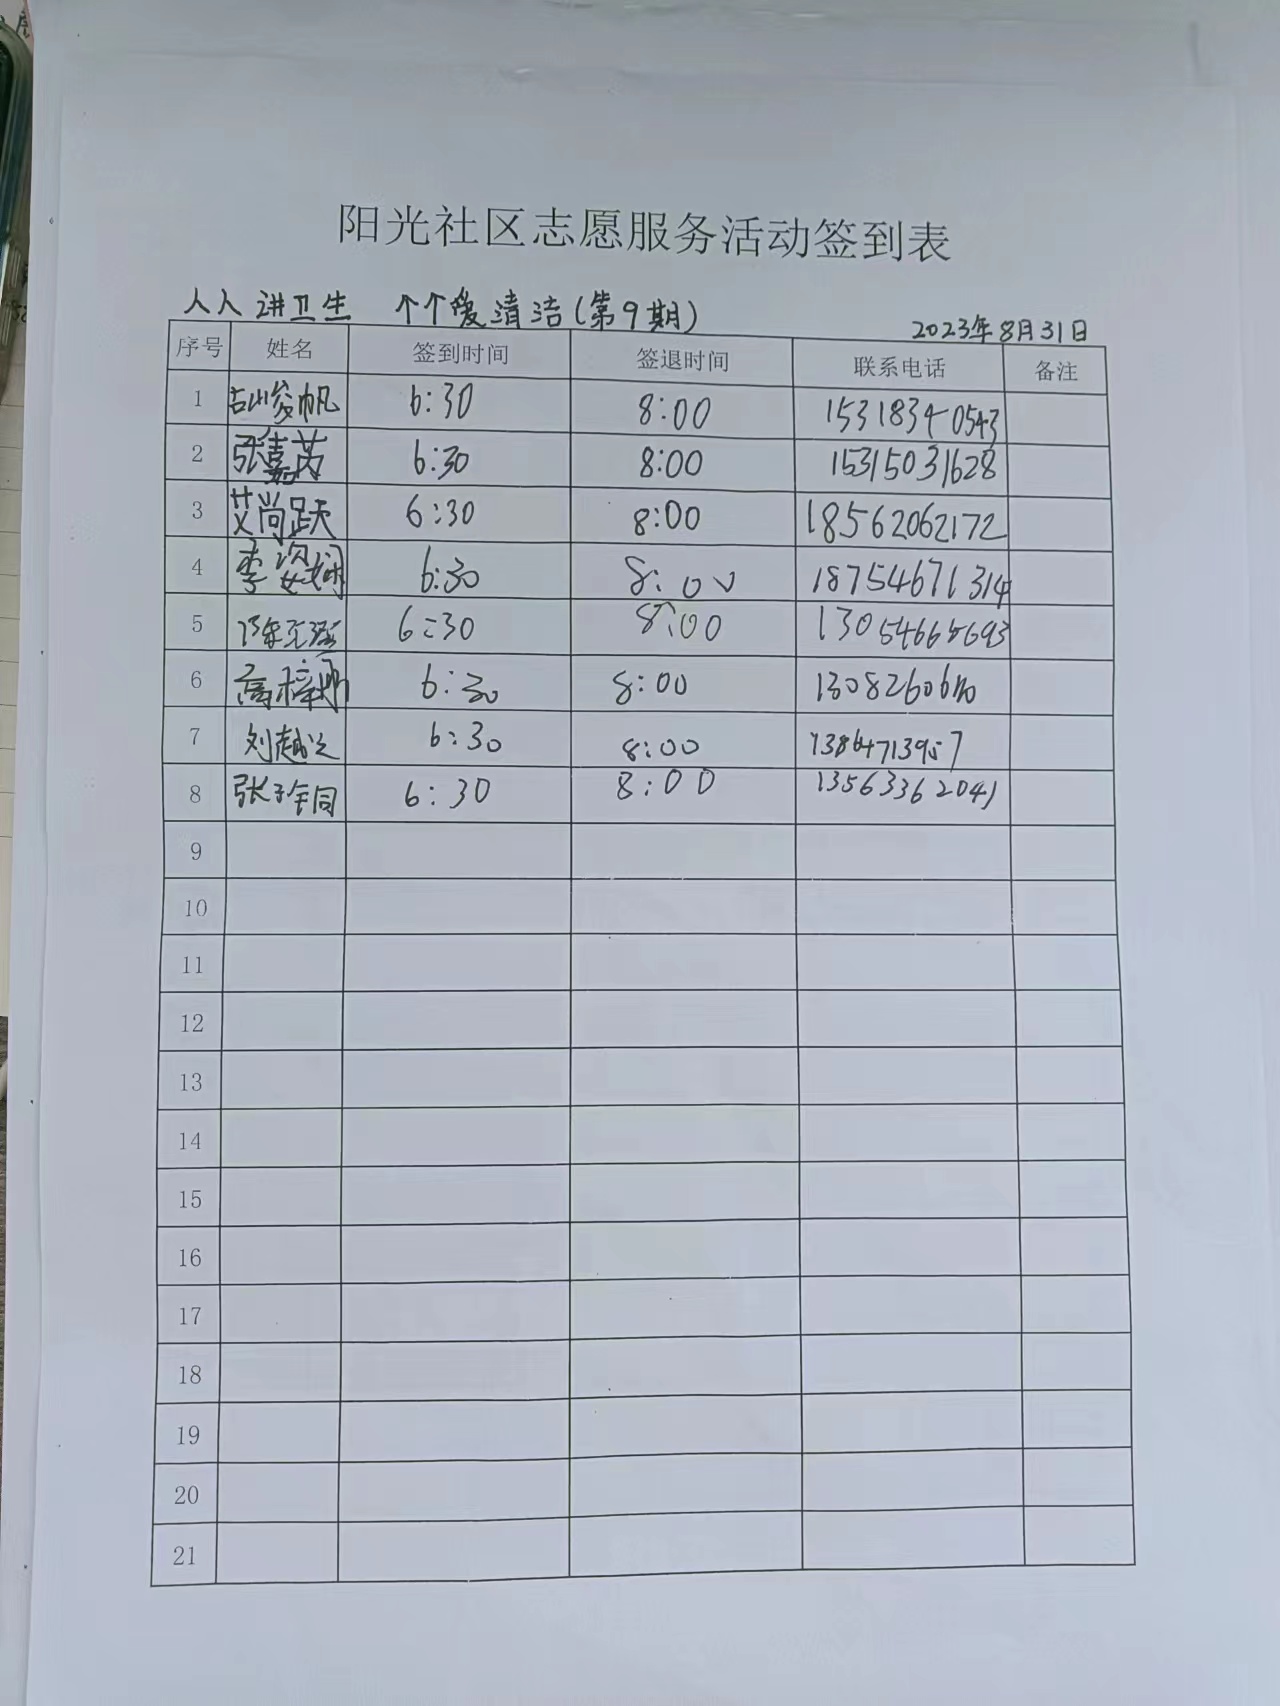 阳光社区志愿服务活动签到表
人人讲卫生 个个爱清洁(第9期)
2023年8月31日
序号 姓名 签到时间 签退时间 联系电话 备注
1 帆 6:30 8:00 15318340543
2 张嘉芮 6:30 8:00 15315031628
3 艾尚跃 6:30 8:00 18562062172
4 李姿娴 6:30 8:00 18754671314
5 6:30 8:00
6 高梓 6:30 8:00
7 刘越 6:30 8:00 13864713957
8 张 6:30 8:00 13563362041
9
10
11
12
13
14
15
16
17
18
19
20
21